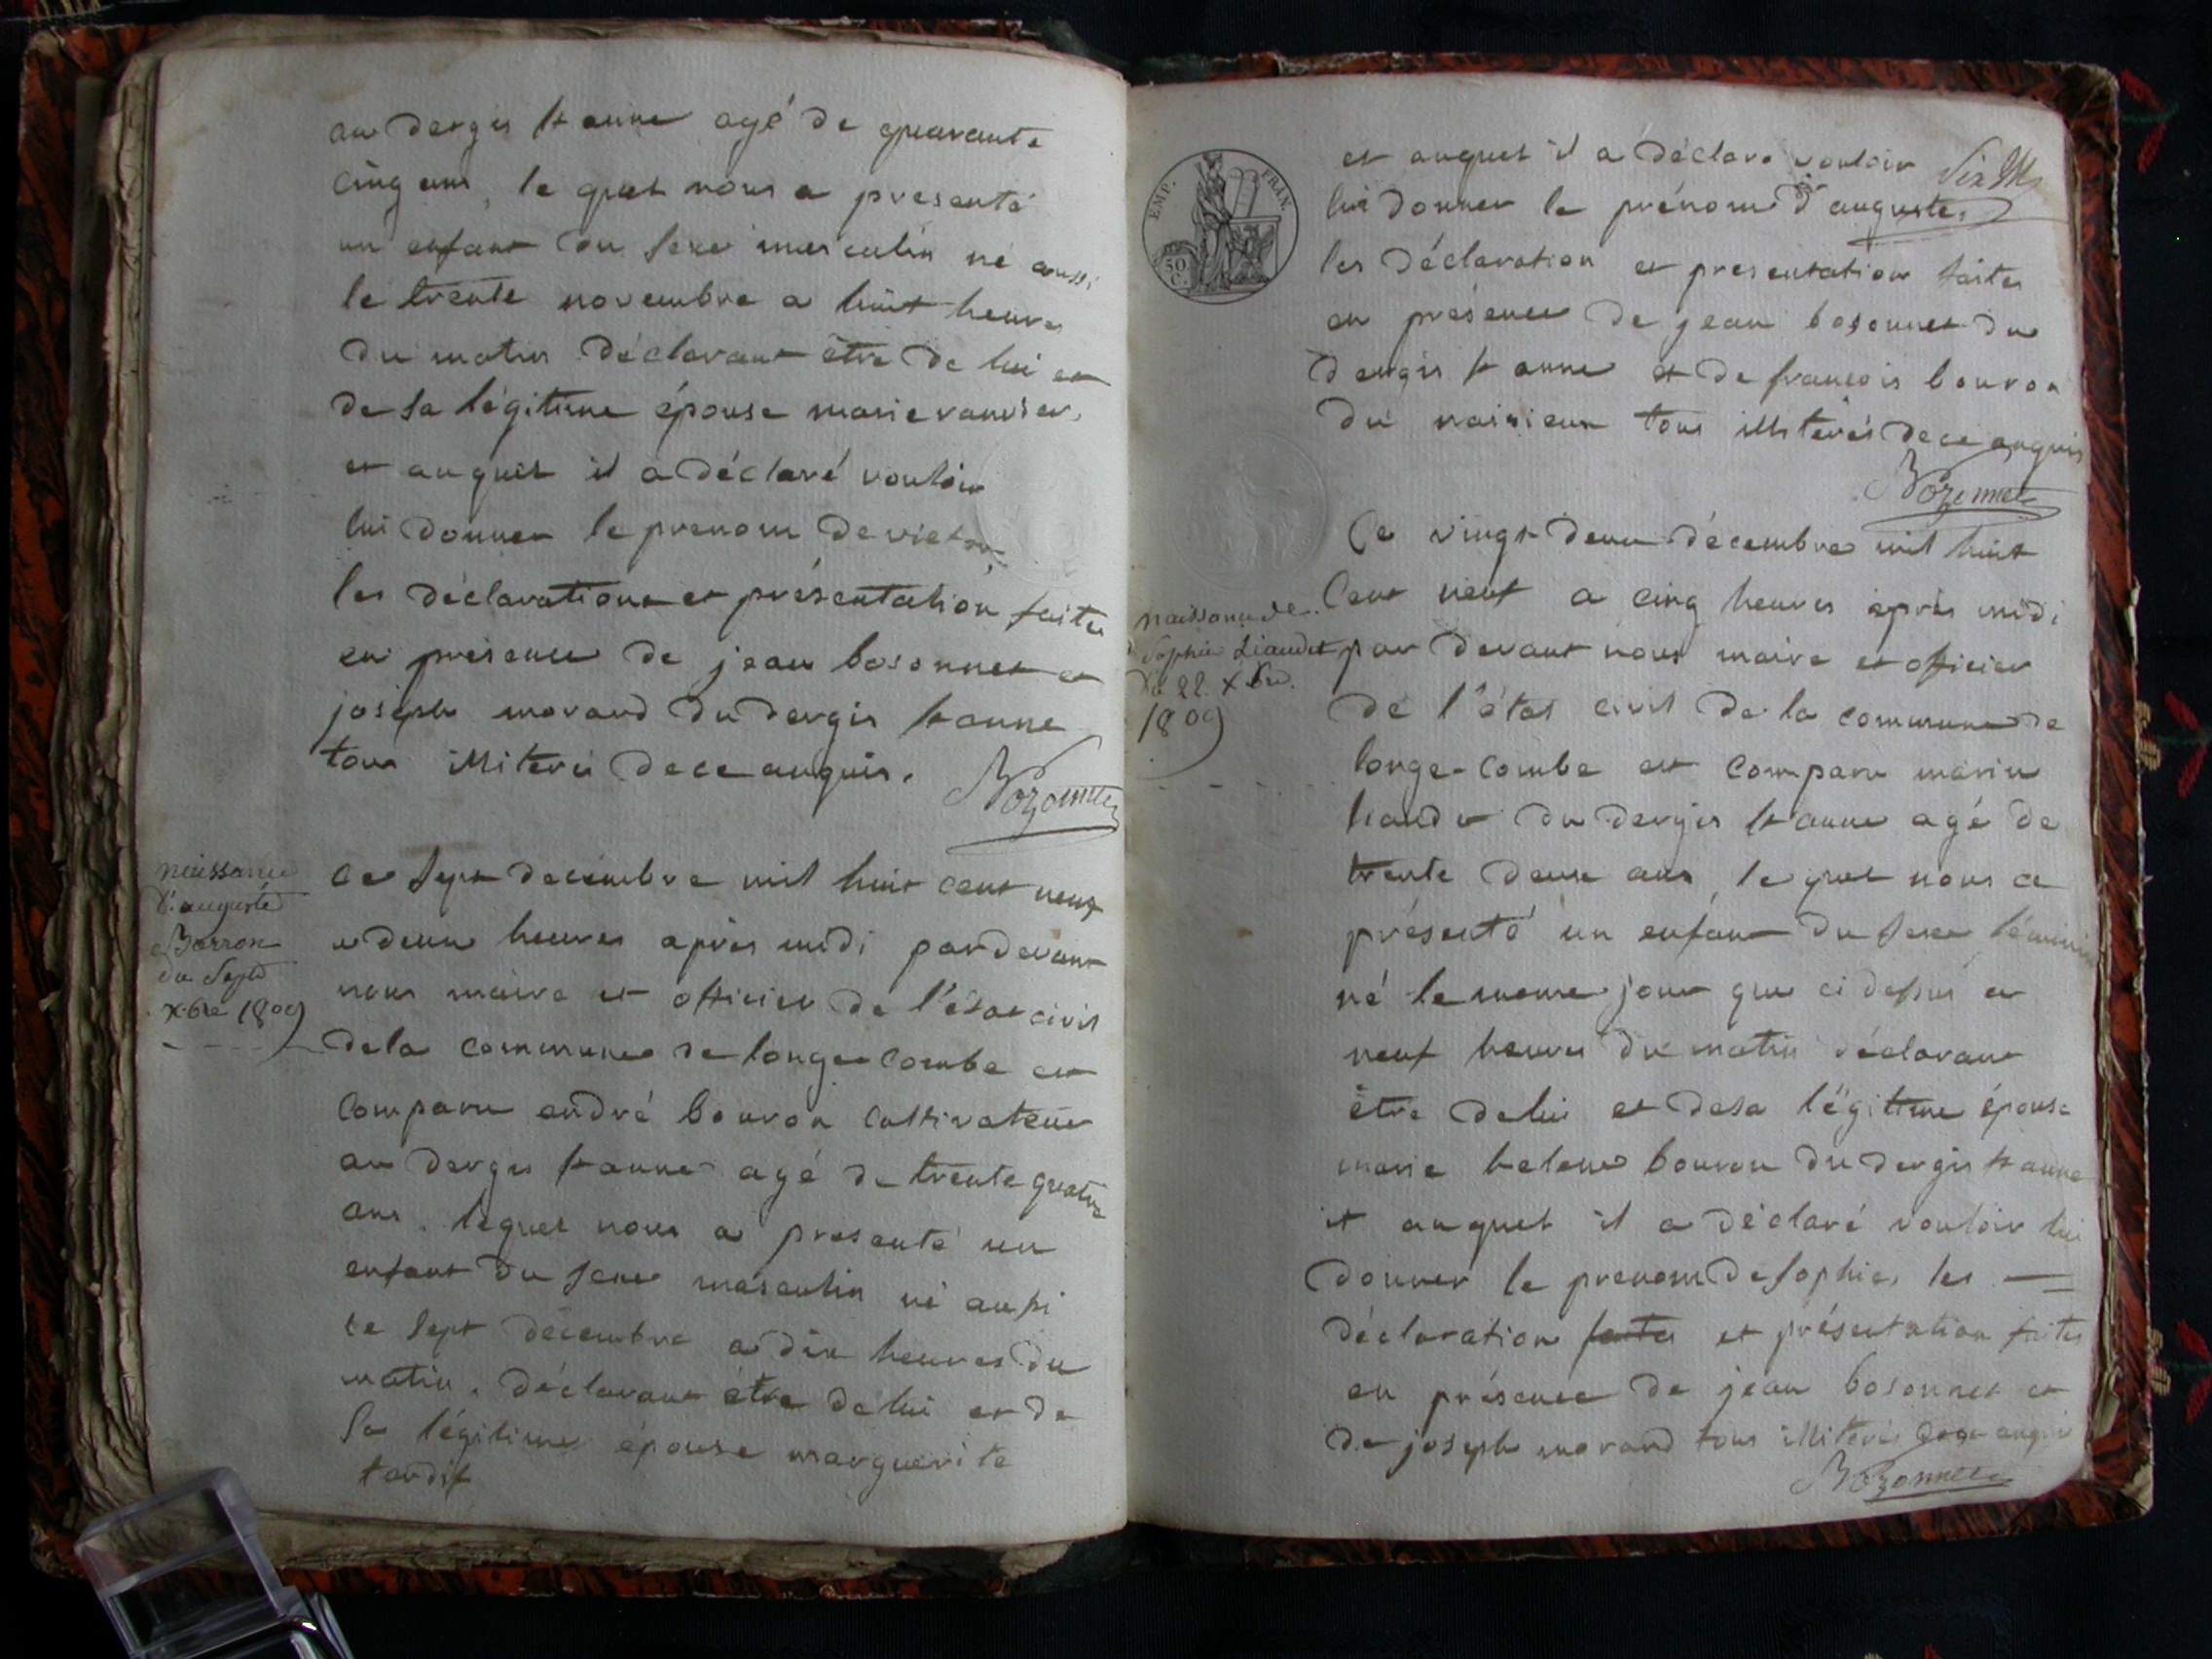 au dergis st anne agé de quarante
cinq ans, le quel nous a presenté
un enfant du sexe masculin né aussi
le trente novembre a huit heures
du matin déclarant être de lui et
de sa légitime épouse marie
et auquel il a déclaré vouloir
lui donner le prenom de victor
les déclarations et présentation faites
en présence de jean bosonnet et
joseph morand du dergis st anne
tous illiterés de ce anquis.
Bozonnet
naissance
d'auguste
Borron
du Sept
xbre 1809
ce sept decembre mil huit cent neuf
a deux heures après midi pardevant
nous maire et officier de l'état civil
dela commune de longecombe est
comparu andré bouron cultivateur
au dergis st anne agé de trente quatre
ans. lequel nous a presenté un
enfant du sexe masculin né aussi
le sept décembre a dix heures du
matin. déclarant être de lui et de
sa légitime épouse marguerite
tardif
EMP. FRAN.
50 C.
et auquel il a déclaré vouloir
lui donner le prénom d'auguste,
les déclaration et presentation faites
en présence de jean bosonnet du
dergis st anne et de francois bouron
du tous illiterés de ce anquis
Bozonnet
naissance de
Sophie Liaudet
du 22 xbre
1809
Ce vingt deux décembre mil huit
Cent neuf a cinq heures après midi
par devant nous maire et officier
de l'état civil de la commune de
longe-combe est comparu marin
liaudet du dergis st anne agé de
trente deux ans, lequel nous a
présenté un enfant du sexe féminin
né le meme jour que ci dessus a
neuf heures du matin déclarant
être de lui et desa légitime épouse
marie helene bouron du dergis st anne
et auquel il a déclaré vouloir lui
donner le prenom de sophie, les
déclaration faites et présentation faites
en présence de jean bosonnet et
de joseph morand tous illiterés de ce anquis
Bozonnet